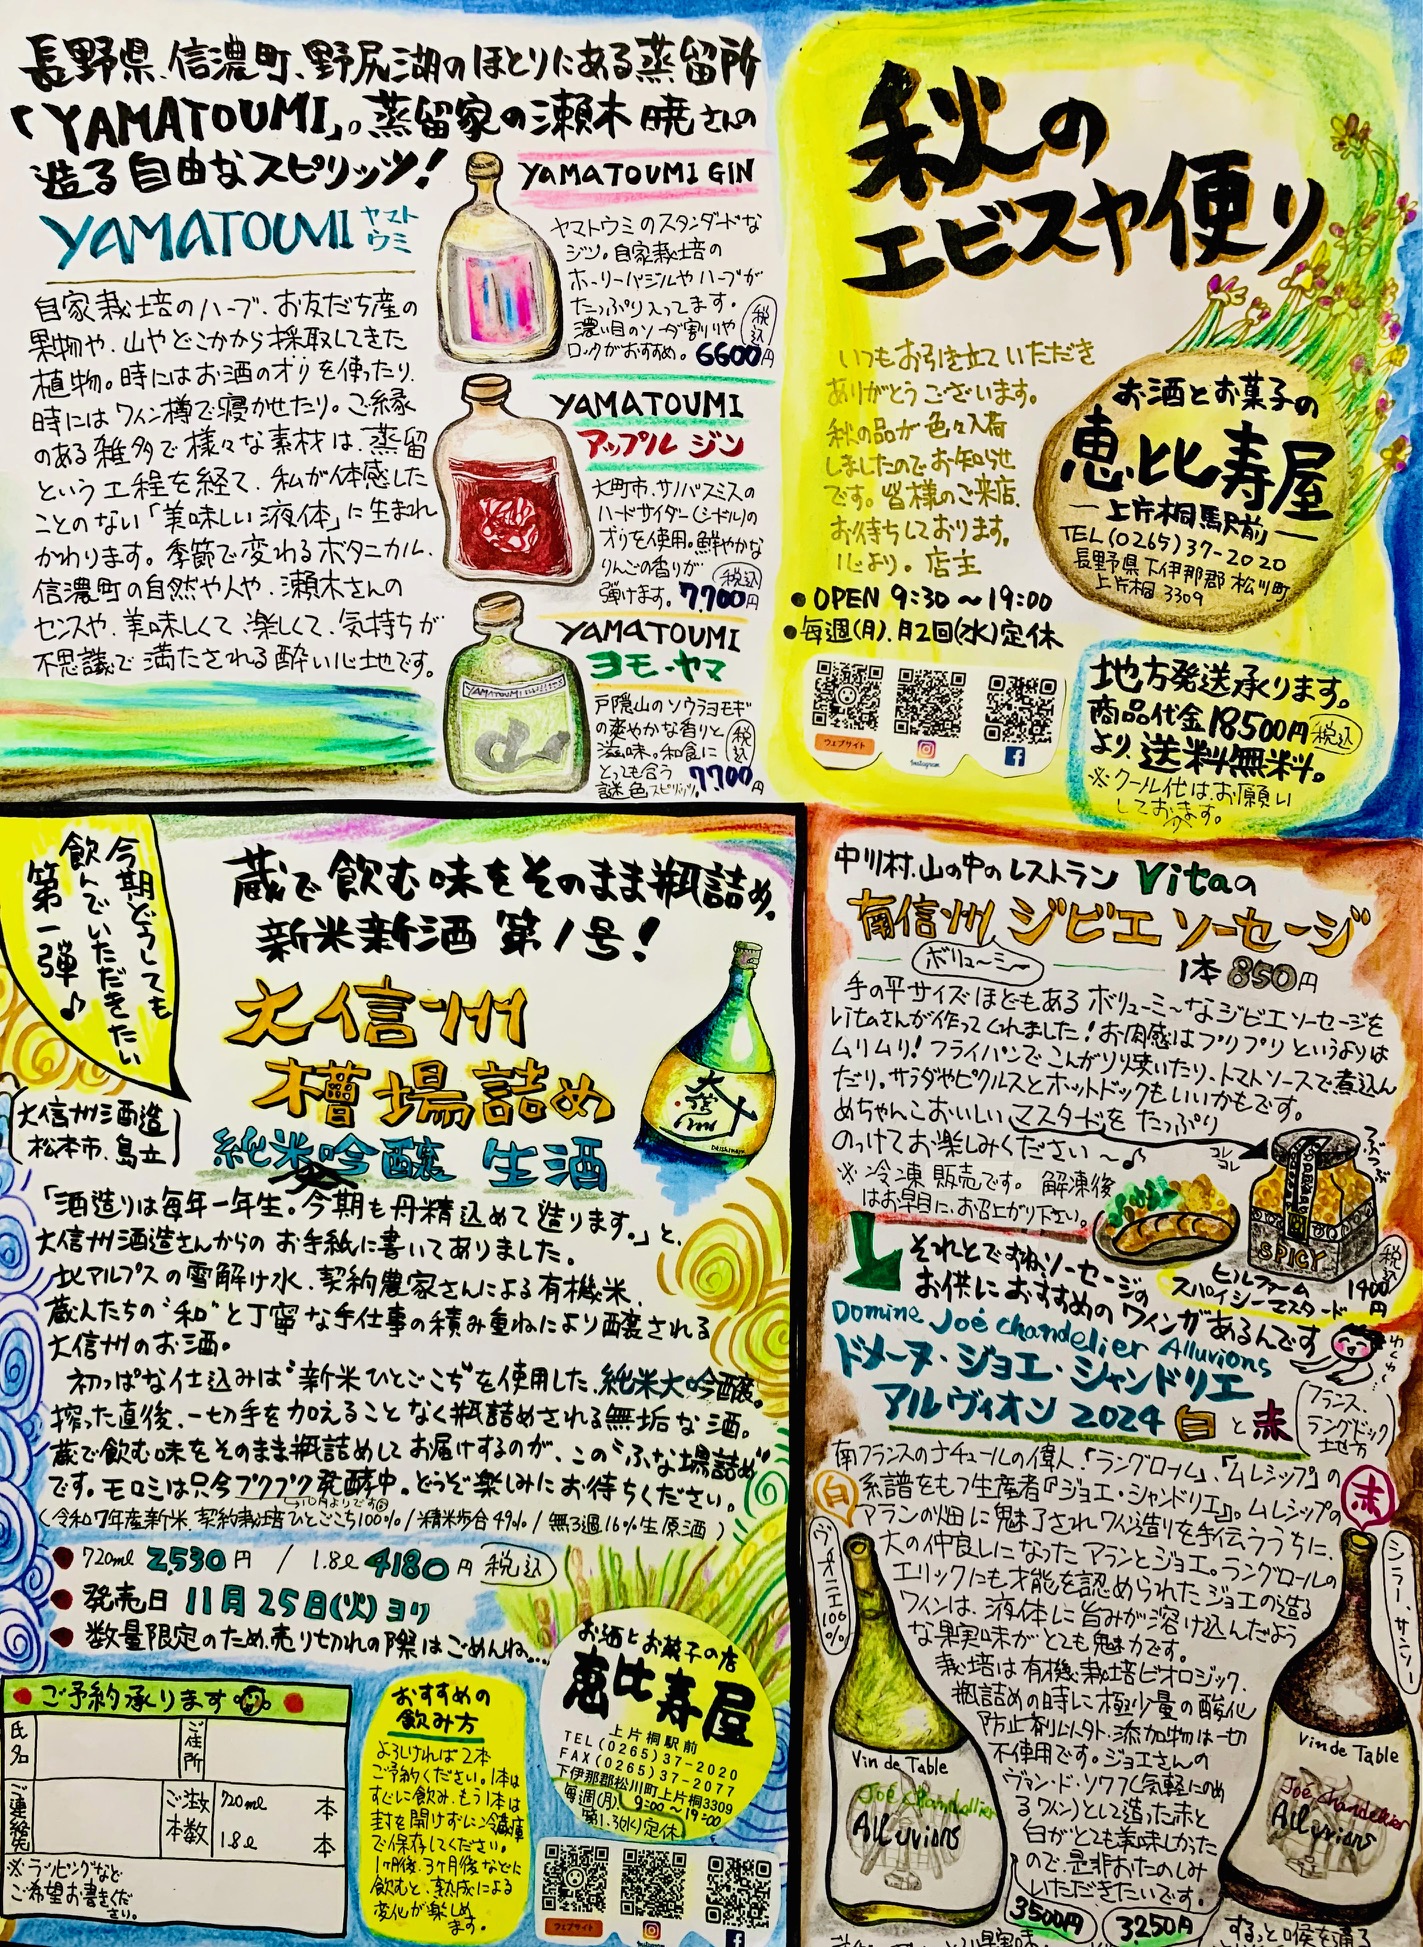 長野県、信濃町、野尻湖のほとりにある蒸留所
「YAMATOUMI」。蒸留家の瀬木暁さんの
造る自由なスピリッツ!
YAMATOUMI ヤマト
ウミ
自家栽培のハーブ、お友だち産の
果物や、山やどこかから採取してきた
植物。時にはお酒のオリを使ったり、
時にはワイン樽で寝かせたり。ご縁
のある雑多で様々な素材は、蒸留
という工程を経て、私が体感した
ことのない「美味しい液体」に生まれ
かわります。季節で変わるボタニカル、
信濃町の自然や人や、瀬木さんの
センスや、美味しくて、楽しくて、気持ちが
不思議で満たされる酔い心地です。
YAMATOUMI GIN
ヤマトウミのスタンダードな
ジン。自家栽培の
ホーリーバジルやハーブが
たっぷり入ってます。
濃い目のソーダ割りや
ロックがおすすめ。6600円
税込
YAMATOUMI
アップル ジン
大町市、サノバスミスの
ハードサイダー(シドル)の
オリを使用。鮮やかな
りんごの香りが
弾けます。7,700円
税込
YAMATOUMI
ヨモ・ヤマ
YAMATOUMI
山
戸隠山のソウラヨモギ
の爽やかな香りと
滋味。和食に
とっても合う
謎色スピリッツ。7,700円
税込
秋の
エビスヤ便り
いつもお引き立ていただき
ありがとうございます。
秋の品が色々入荷
しましたのでお知らせ
です。皆様のご来店、
お待ちしております。
心より。店主
お酒とお菓子の
恵比寿屋
―上片桐駅前―
TEL(0265)37-2020
長野県下伊那郡松川町
上片桐3309
●OPEN 9:30〜19:00
●毎週(月)、月2回(水)定休
ウェブサイト
Instagram
地方発送承ります。
商品代金18500円(税込)
より、送料無料。
※クール代は、お願い
しております。
今期どうしても
飲んでいただきたい
第一弾♪
蔵で飲む味をそのまま瓶詰め。
新米新酒 第1号!
大信州
槽場詰め
純米吟醸 生酒
大信州酒造
松本市、島立
大信州
「酒造りは毎年一年生。今期も丹精込めて造ります。」と、
大信州酒造さんからのお手紙に書いてありました。
北アルプスの雪解け水、契約農家さんによる有機米、
蔵人たちの“和”と丁寧な手仕事の積み重ねにより醸される
大信州のお酒。
初っぱな仕込みは“新米ひとごこち”を使用した、純米大吟醸。
搾った直後、一切手を加えることなく瓶詰めされる無垢な酒。
蔵で飲む味をそのまま瓶詰めしてお届けするのが、この“ふな場詰め”
です。モロミは只今ブクブク発酵中。どうぞ楽しみにお待ちください。
(令和7年産新米、契約栽培ひとごこち100%/精米歩合49%/無ろ過16%生原酒)
●720ml 2,530円 / 1.8ℓ 4180円(税込)
●発売日 11月25日(火)ヨリ
●数量限定のため、売り切れの際はごめんね....
●ご予約承ります●
氏名
ご住所
ご連絡先
ご注文
本数
720ml 本
1.8ℓ 本
※ラッピングなど
ご希望お書きくだ
さい。
おすすめの
飲み方
よろしければ2本
ご予約ください。1本は
すぐに飲み、もう1本は
封を開けずに冷蔵庫
で保存してください。
1ヶ月後、3ヶ月後などに
飲むと、熟成による
変化が楽しめ
ます。
お酒とお菓子の店
恵比寿屋
上片桐駅前
TEL(0265)37-2020
FAX(0265)37-2077
下伊那郡松川町上片桐3309
毎週(月)、9:00〜19:00
第1.3(火)定休
ウェブサイト
Instagram
中川村、山の中のレストラン Vitaの
南信州 ジビエ ソーセージ
ボリュ〜ミ〜
1本 850円
手の平サイズほどもあるボリューミ〜なジビエソーセージを
Vitaさんが作ってくれました!お肉感はプリプリというよりは
ムリムリ!フライパンでこんがり焼いたり、トマトソースで煮込ん
だり。サラダやピクルスとホットドックもいいかもです。
めちゃんこおいしいマスタードをたっぷり
のっけてお楽しみください〜♪
※冷凍販売です。解凍後
はお早目に、お召上がり下さい。
コレコレ
つぶつぶ
SPICY
ヒルファーム
スパイシーマスタード
税込
1400円
それとですね、ソーセージの
お供におすすめのワインがあるんです
わくわく
Domine Joé Chandelier Alluvions
ドメーヌ・ジョエ・シャンドリエ
アルヴィオン 2024 白と赤
フランス、
ラングドック
地方
南フランスのナチュールの偉人、「ラングロール」、「ムレシップ」の
系譜をもつ生産者『ジョエ・シャンドリエ』。ムレシップの
アランの畑に魅了されワイン造りを手伝ううちに、
大の仲良しになったアランとジョエ。ラングロールの
エリックにも才能を認められたジョエの造る
ワインは、液体に旨みが溶け込んだよう
な果実味がとても魅力です。
栽培は有機栽培ビオロジック、
瓶詰めの時に極少量の酸化
防止剤以外、添加物は一切
不使用です。ジョエさんの
ヴァン・ド・ソワフ(気軽にのめ
るワイン)として造った赤と
白がとても美味しかった
ので、是非おたのしみ
いただきたいです。
白
ヴィオニエ100%
Vin de Table
Joé Chandelier
Alluvions
3500円
赤
シラー、サンソー
Vin de Table
Joé Chandelier
Alluvions
3,250円
するっと喉を通る